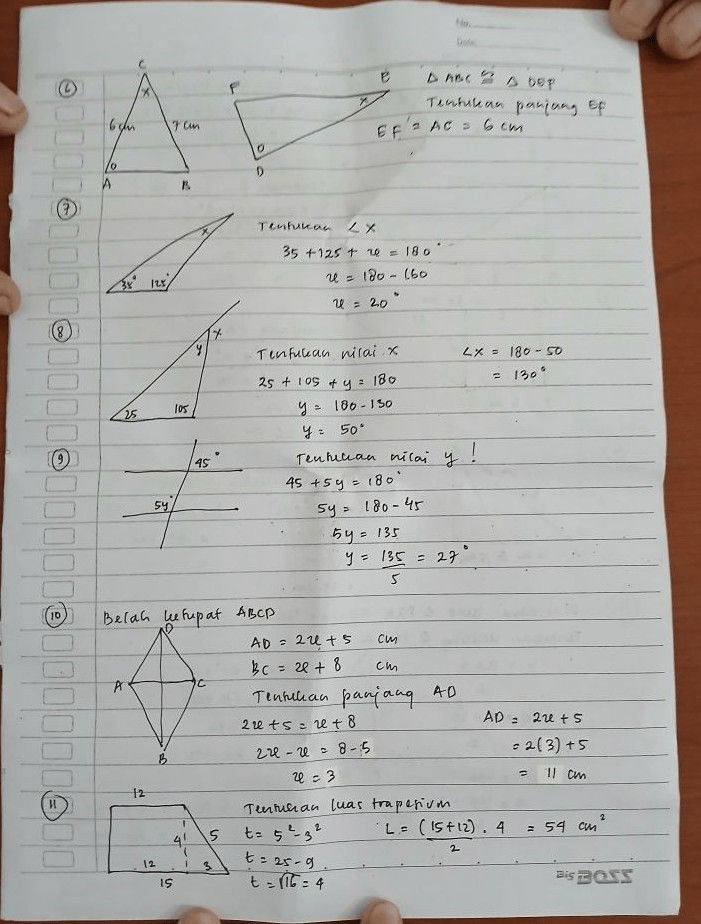 No.
Date:
6 C x 6 cm 7 cm A o B
F E x o D
Δ ABC ≅ Δ DEF
Tentukan panjang EF
EF = AC = 6 cm
7 35° 125° x
Tentukan ∠X
35 + 125 + x = 180°
x = 180 - 160
x = 20°
8 x y 25 105
Tentukan nilai x
∠x = 180 - 50
25 + 105 + y = 180
= 130°
y = 180 - 130
y = 50°
9 45° 5y°
Tentukan nilai y !
45 + 5y = 180°
5y = 180 - 45
5y = 135
y = 135/5 = 27°
10 Belah ketupat ABCD
D A C B
AD = 2x + 5 cm
BC = x + 8 cm
Tentukan panjang AD
2x + 5 = x + 8
AD = 2x + 5
2x - x = 8 - 5
= 2(3) + 5
x = 3
= 11 cm
11 12 4 5 12 3 15
Tentukan luas trapesium
t = 5² - 3²
L = (15 + 12)/2 . 4 = 54 cm²
t = 25 - 9
t = √16 = 4
Bis BOSS